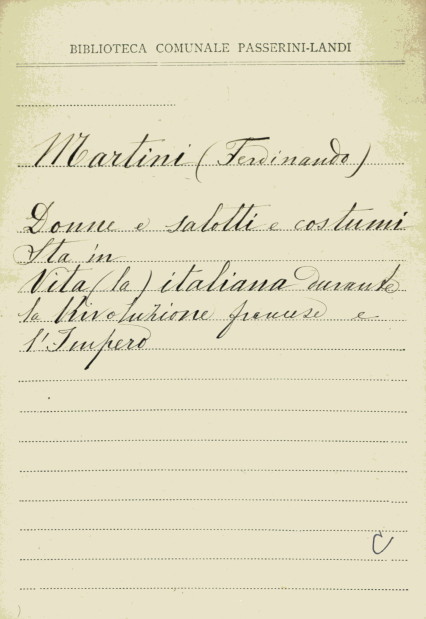 BIBLIOTECA COMUNALE PASSERINI-LANDI
Martini (Ferdinando)
Donne e salotti e costumi
Sta in
Vita (la) italiana durante
la Rivoluzione francese e
l'Impero
C